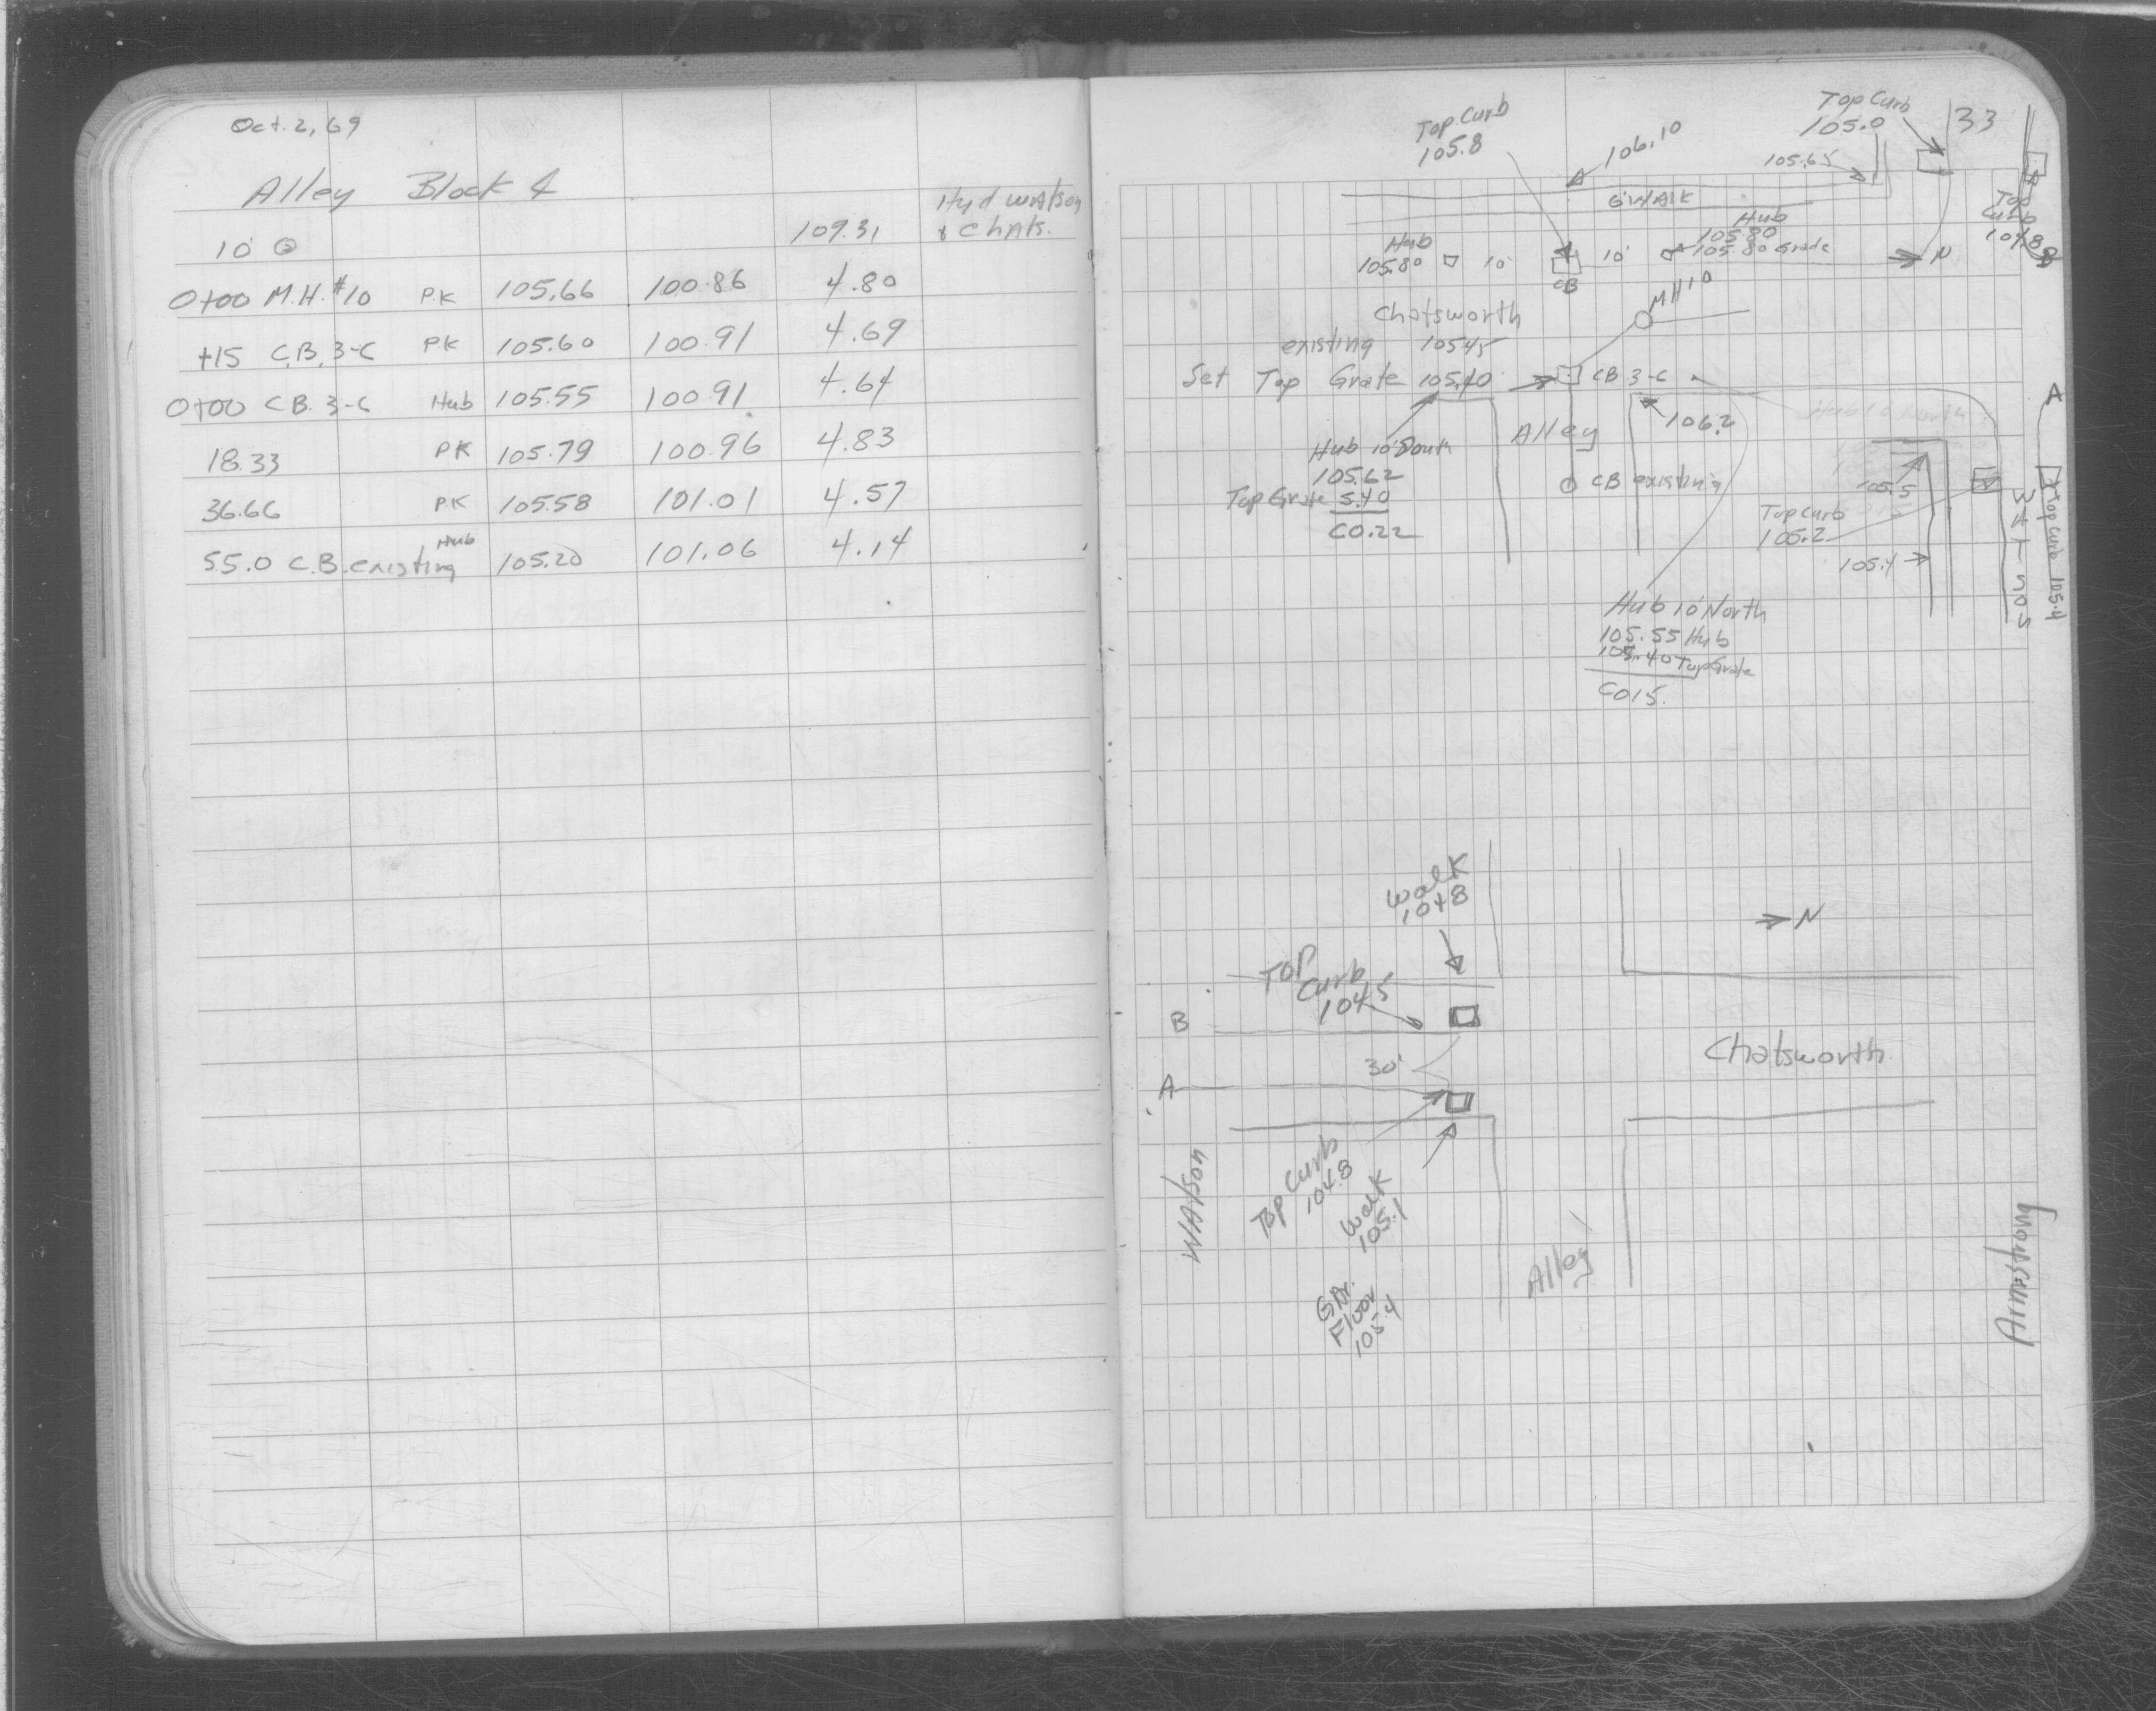 Oct. 2, 69
Alley Block 4
10' ⊙ 109.31 Hyd Watson & Chats.
0+00 M.H. #10 PK 105.66 100.86 4.80
+15 C.B. 3-C PK 105.60 100.91 4.69
0+00 C.B. 3-C Hub 105.55 100.91 4.64
18.33 PK 105.79 100.96 4.83
36.66 PK 105.58 101.01 4.57
55.0 C.B. existing Hub 105.20 101.06 4.14
33
Top Curb
105.8
106.10
Top Curb
105.0
105.65
6' WAlk
Top
Curb
104.8
B
Hub
105.80
10'
CB
10'
Hub
105.80
105.80 Grade
N
MH 10
Chatsworth
existing 105.45
Set Top Grate 105.40
CB 3-C
A
Hub 10 North
106.2
Alley
Hub 10' South
105.62
Top Grate 5.40
C0.22
CB existing
105.5
Top Curb
105.2
105.4
Top Curb 105.4
Hub 10' North
105.55 Hub
105.40 Top Grate
C015.
Walk
104.8
N
Top
Curb
104.5
B
30'
A
Chatsworth
WAtson
Top Curb
104.8
Walk
105.1
GAr.
Floor
105.4
Alley
Armstrong